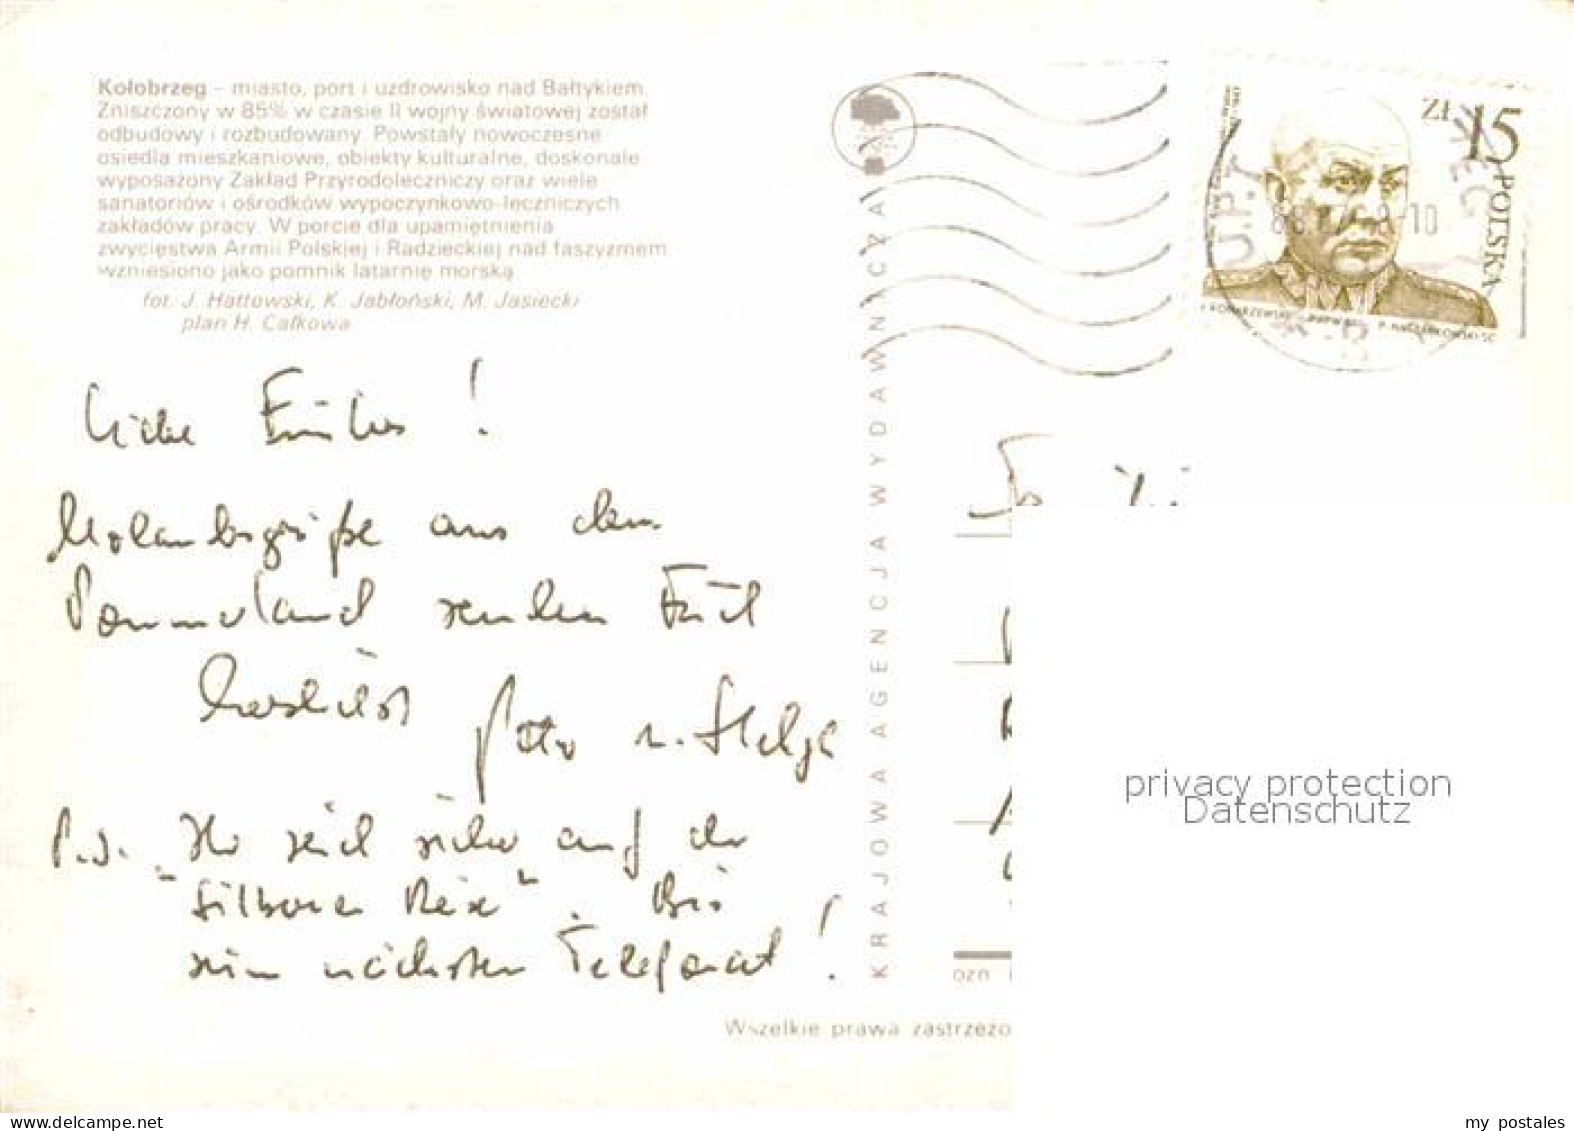 Kołobrzeg – miasto, port i uzdrowisko nad Bałtykiem.
Zniszczony w 85% w czasie II wojny światowej został
odbudowy i rozbudowany. Powstały nowoczesne
osiedla mieszkaniowe, obiekty kulturalne, doskonale
wyposażony Zakład Przyrodoleczniczy oraz wiele
sanatoriów i ośrodków wypoczynkowo-leczniczych
zakładów pracy. W porcie dla upamiętnienia
zwycięstwa Armii Polskiej i Radzieckiej nad faszyzmem
wzniesiono jako pomnik latarnię morską
fot. J. Hattowski, K. Jabłoński, M. Jasiecki
plan H. Całkowa
ZŁ 15
POLSKA
U.P.T
Liebe !
Urlaubsgrüße aus dem
Pommerland senden Euch
herzlichst Otto u. Helga
P.S. Ihr seid sicher auf der
"Silbernen Reise". Bis
zum nächsten Telefonat!
KRAJOWA AGENCJA WYDAWNICZA
ozn
Wszelkie prawa zastrzeżo
privacy protection
Datenschutz
WWW.DELCAMPE.NET
my postales